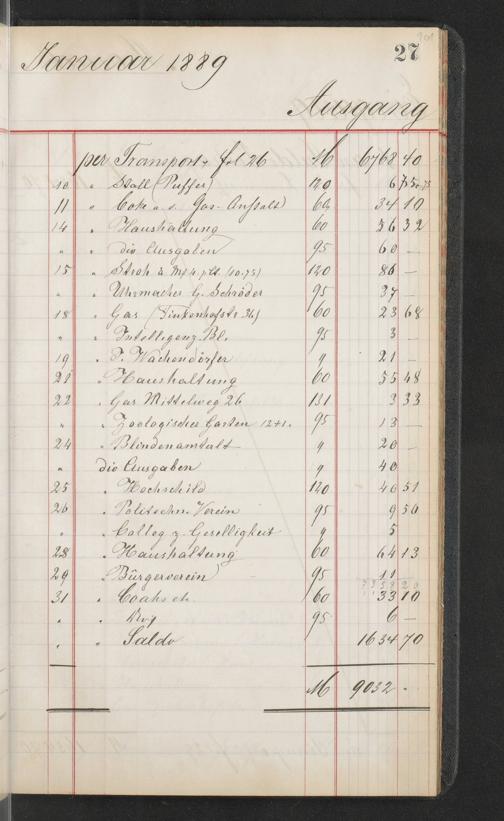 27
Januar 1889
Ausgang
per Transport v. fol 26 M 6768 40
10 " Stall (Puffer) 120 6 75
11 " Coke a. d. Gas-Anstalt 60 34 10
14 " Haushaltung 60 56 32
" " div Ausgaben 95 60 —
15 " Stroh 120 86 —
" " Uhrmacher G. Schröder 95 37 —
18 " Gas (Finkenhofstr. 36) 60 23 68
" " Intelligenz-Bl. 95 3 —
19 " F. Wachendörfer " 21 —
21 " Haushaltung 60 55 48
22 " Gas Mittelweg 26 131 3 33
" " Zoologischer Garten 12+1. 95 13 —
24 " Blindenanstalt " 20 —
" div Ausgaben " 40
25 " Hochschild 120 46 51
26 " Politechn. Verein 95 9 50
" " Colleg z. Geselligkeit " 5
28 " Haushaltung 60 64 13
29 " Bürgerverein 95 11
31 " Coaks 60 33 10
" " 95 6 —
" " Saldo 1634 70
M 9032 -